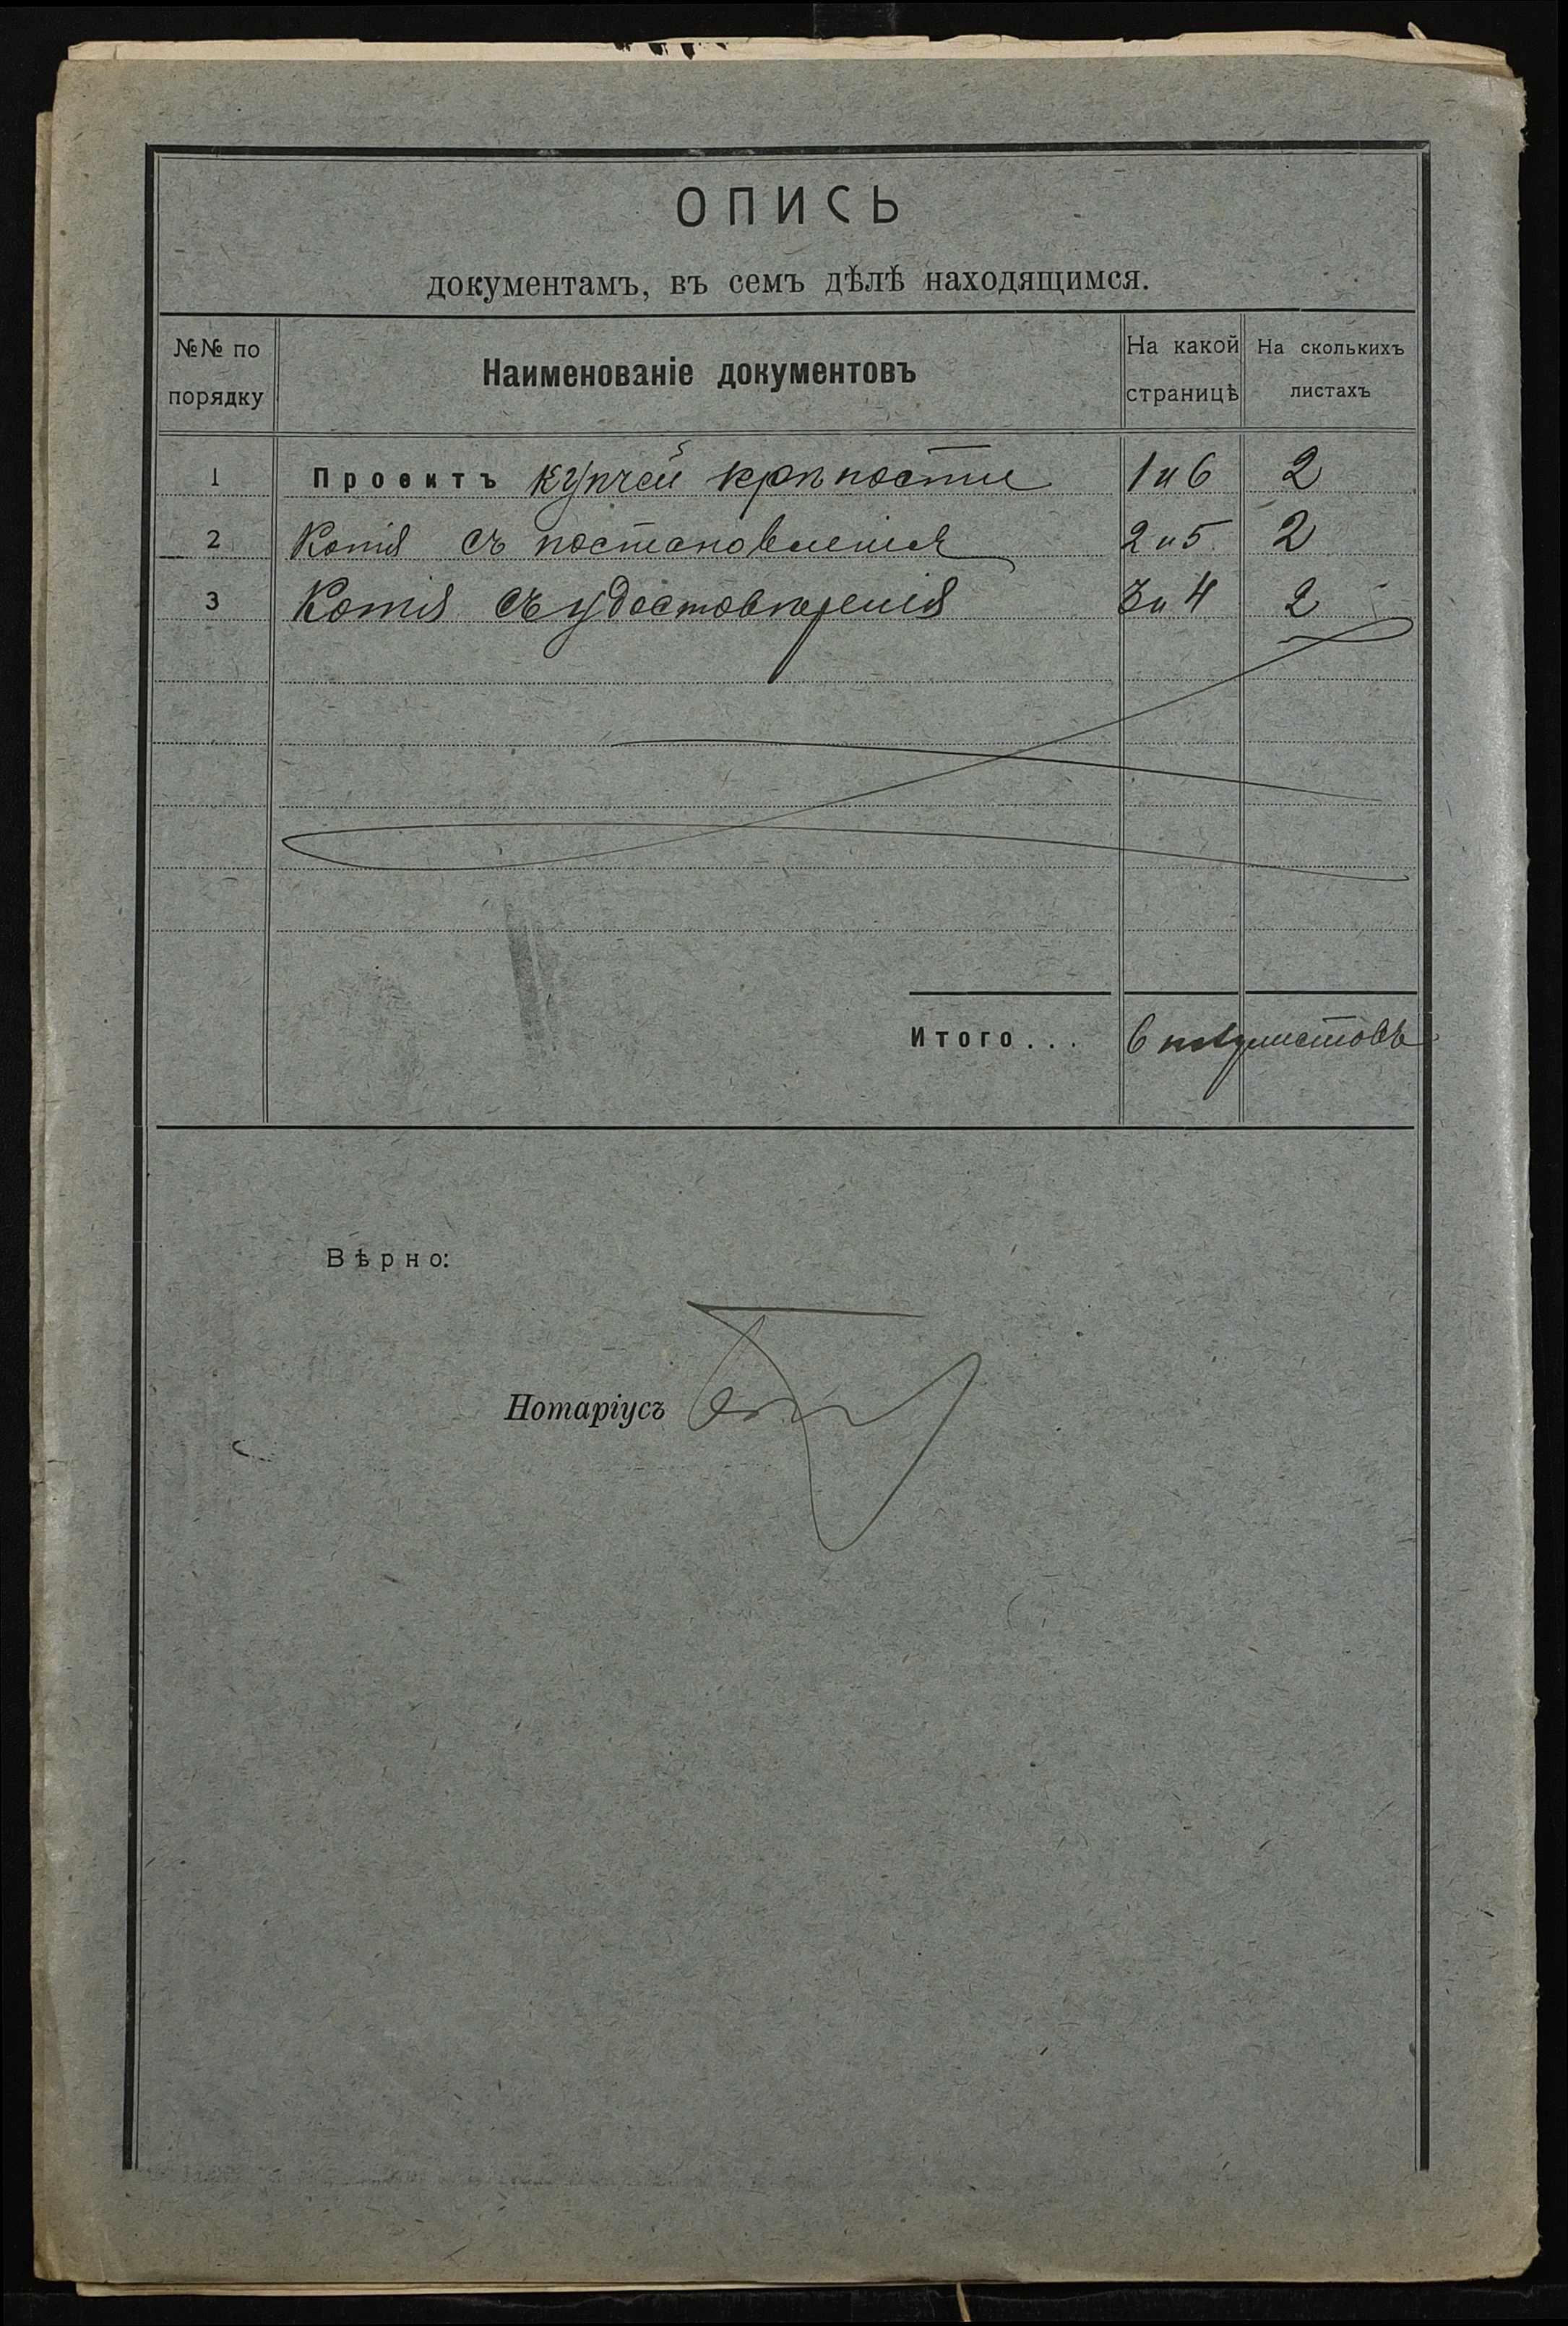 ОПИСЬ
документамъ, въ семъ дѣлѣ находящимся.
№№ по порядку
Наименованіе документовъ
На какой страницѣ
На сколькихъ листахъ
1 Проектъ купчей крѣпости 1 и 6 2
2 Копія съ постановленія 2 и 5 2
3 Копія съ удостовѣренія 3 и 4 2
Итого... 6 полулистовъ
Вѣрно:
Нотаріусъ